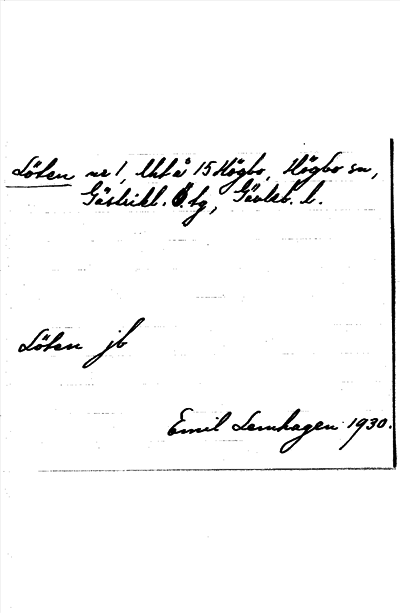 Löten nr 1, lht å 15 Högbo, Högbo sn,
Gästrikl. Ö. tg, Gävleb. l.
Löten jb
Emil Lernhagen 1930.